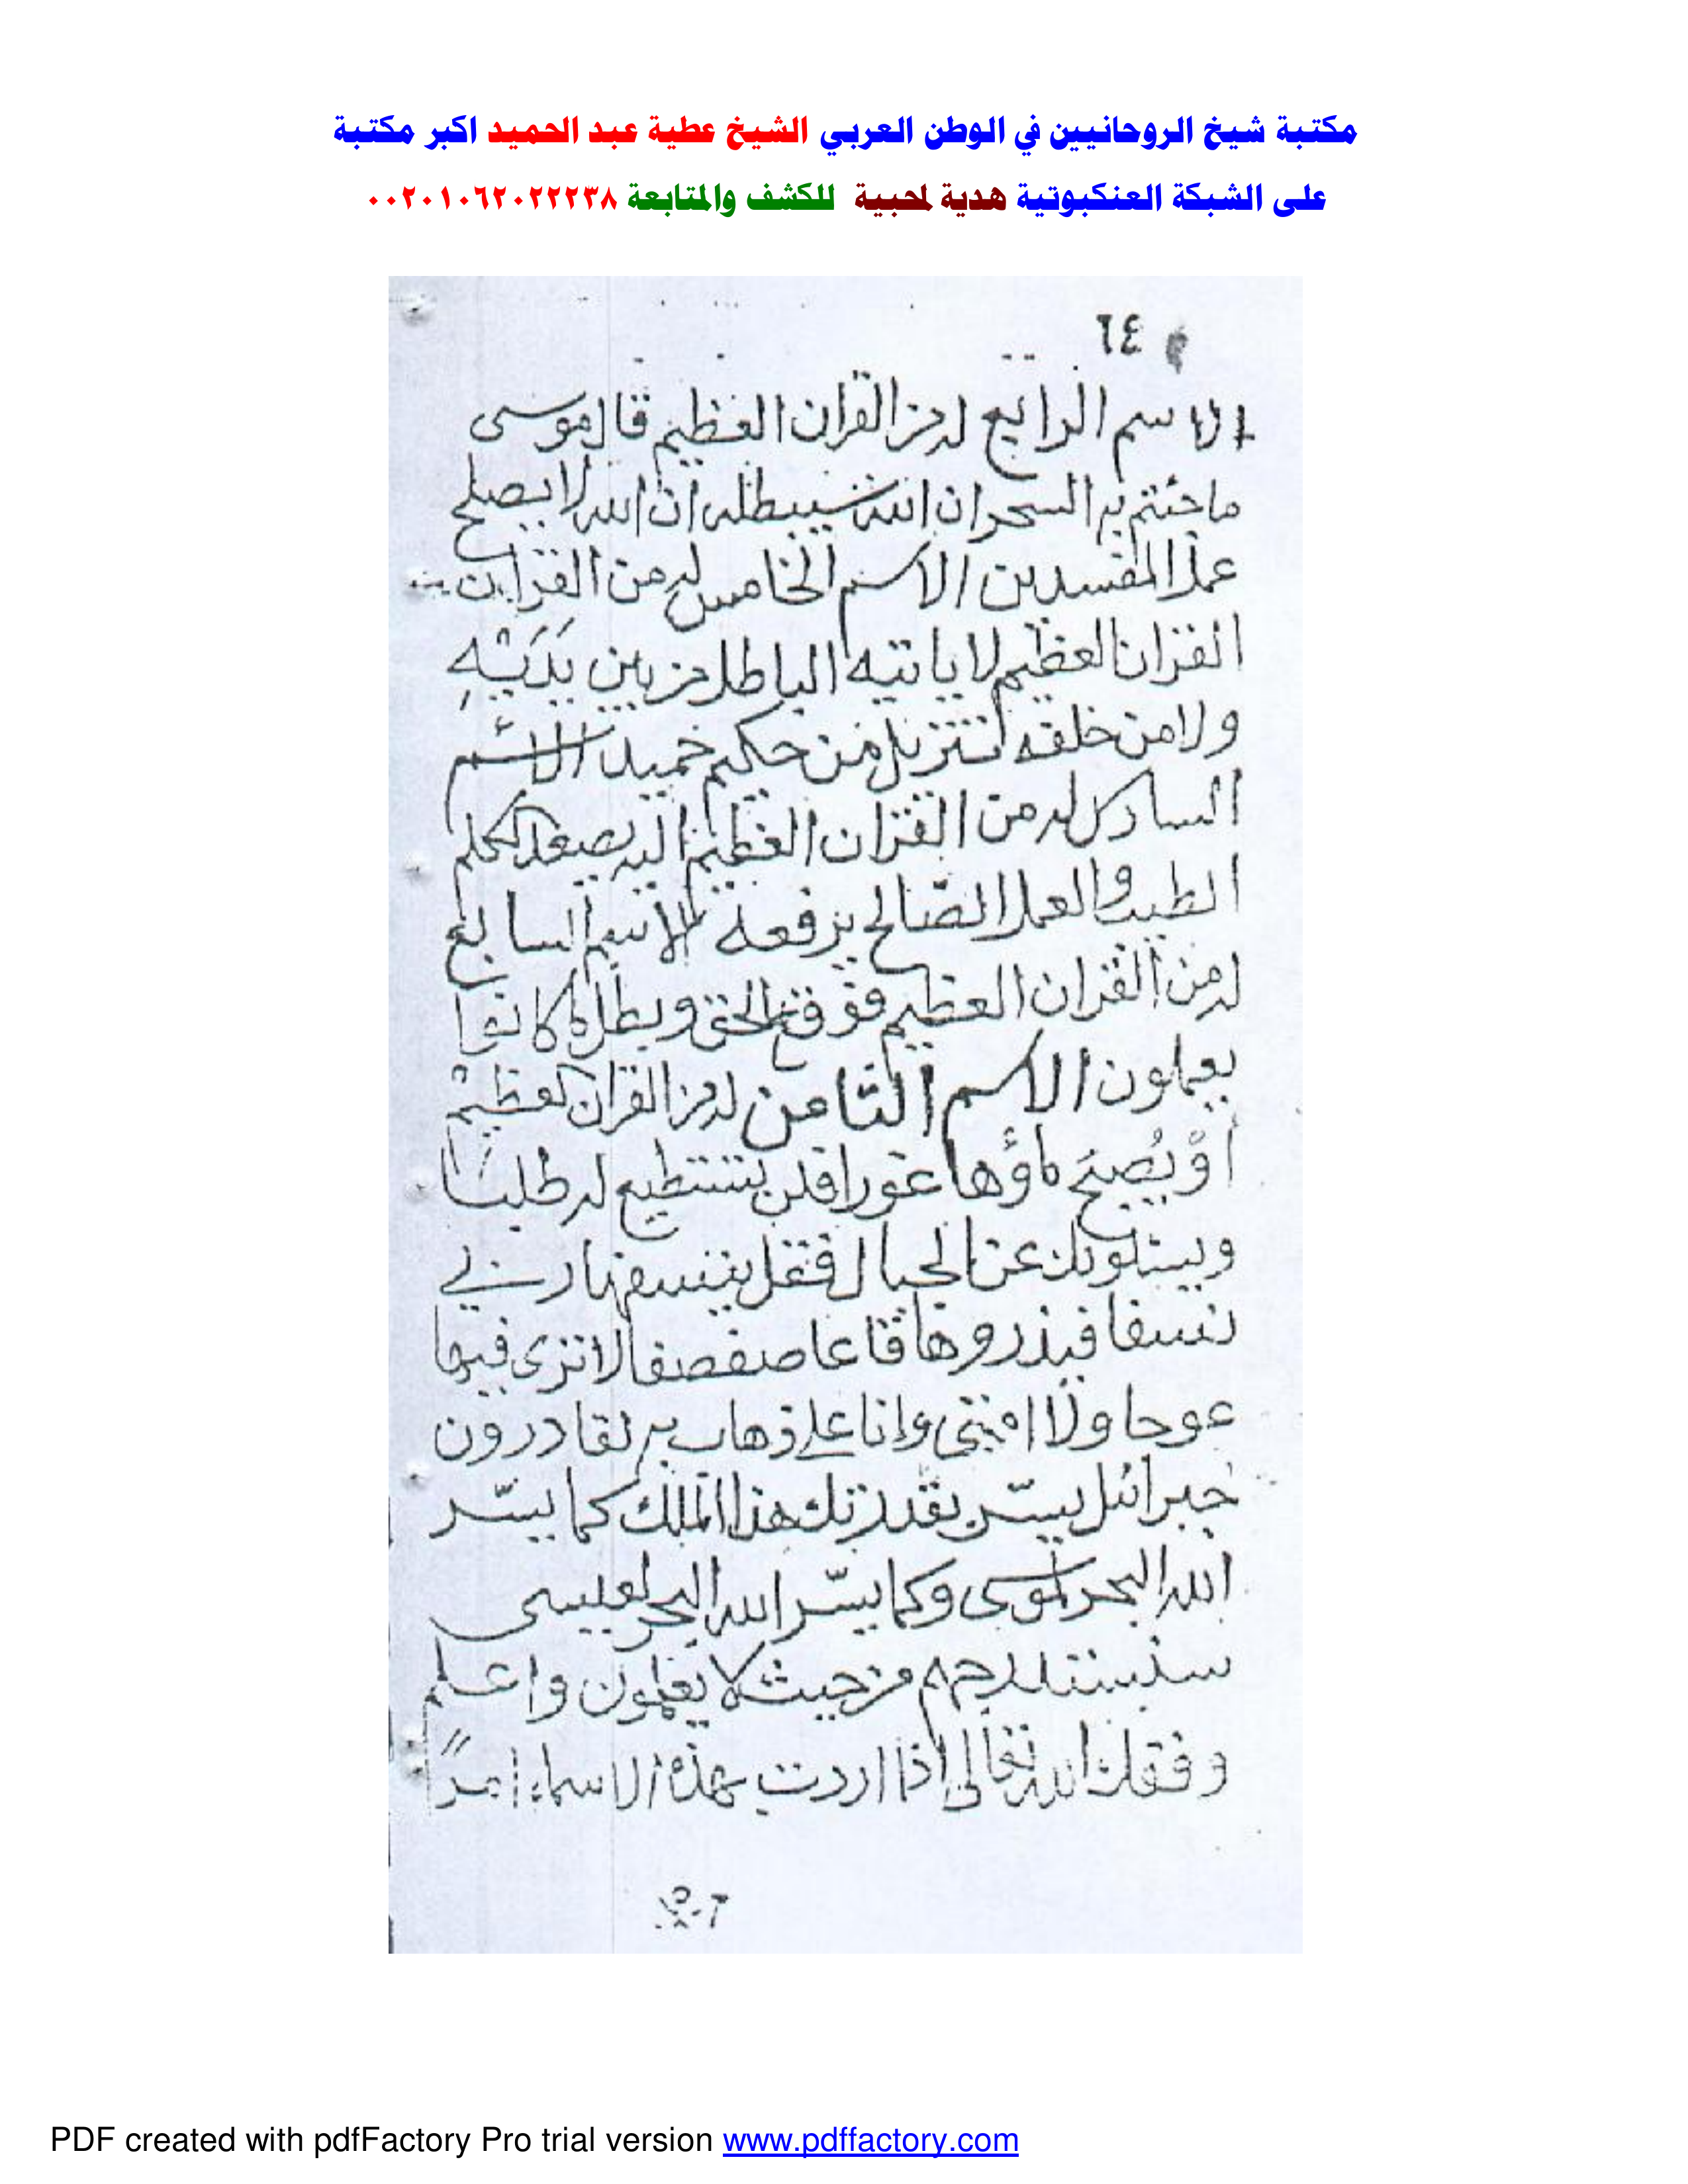 مكتبة شيخ الروحانيين في الوطن العربي الشيخ عطية عبد الحميد اكبر مكتبة
على الشبكة العنكبوتية هدية لمحبيه للكشف والمتابعة ٠٠٢٠١٠٦٢٠٢٢٢٣٨
٦٤
الاسم الرابع له من القران العظيم قال موسى
ما جئتم به السحر ان الله سيبطله ان الله لا يصلح
عمل المفسدين الاسم الخامس له من القران
القران العظيم لا ياتيه الباطل من بين يَدَيْهِ
ولا من خلفه تنزيل من حكيم حميد الاسم
السادس له من القران العظيم اليه يصعد الكلم
الطيب والعمل الصّالح يرفعه الاسم السابع
له من القران العظيم فوقع الحق وبطل ما كانوا
يعملون الاسم الثامن له من القران العظيم
أوْ يُصبحَ ماؤها غورا فلن تستطيع له طلبا
ويسئلونك عن الجبال فقل ينسفها ربي
نسفا فيذروها قاعا صفصفا لا ترى فيها
عوجا ولا امتى وإنا على ذهاب به لقادرون
جبرائيل يسّر بقدرتك هذا الملك كما يسّر
الله البحر لموسى وكما يسّر الله البحر لعيسى
سنستدرجهم من حيث لا يعلمون واعلم
وفقك الله تعالى اذا اردت بهذه الاسماء امراً
PDF created with pdfFactory Pro trial version www.pdffactory.com